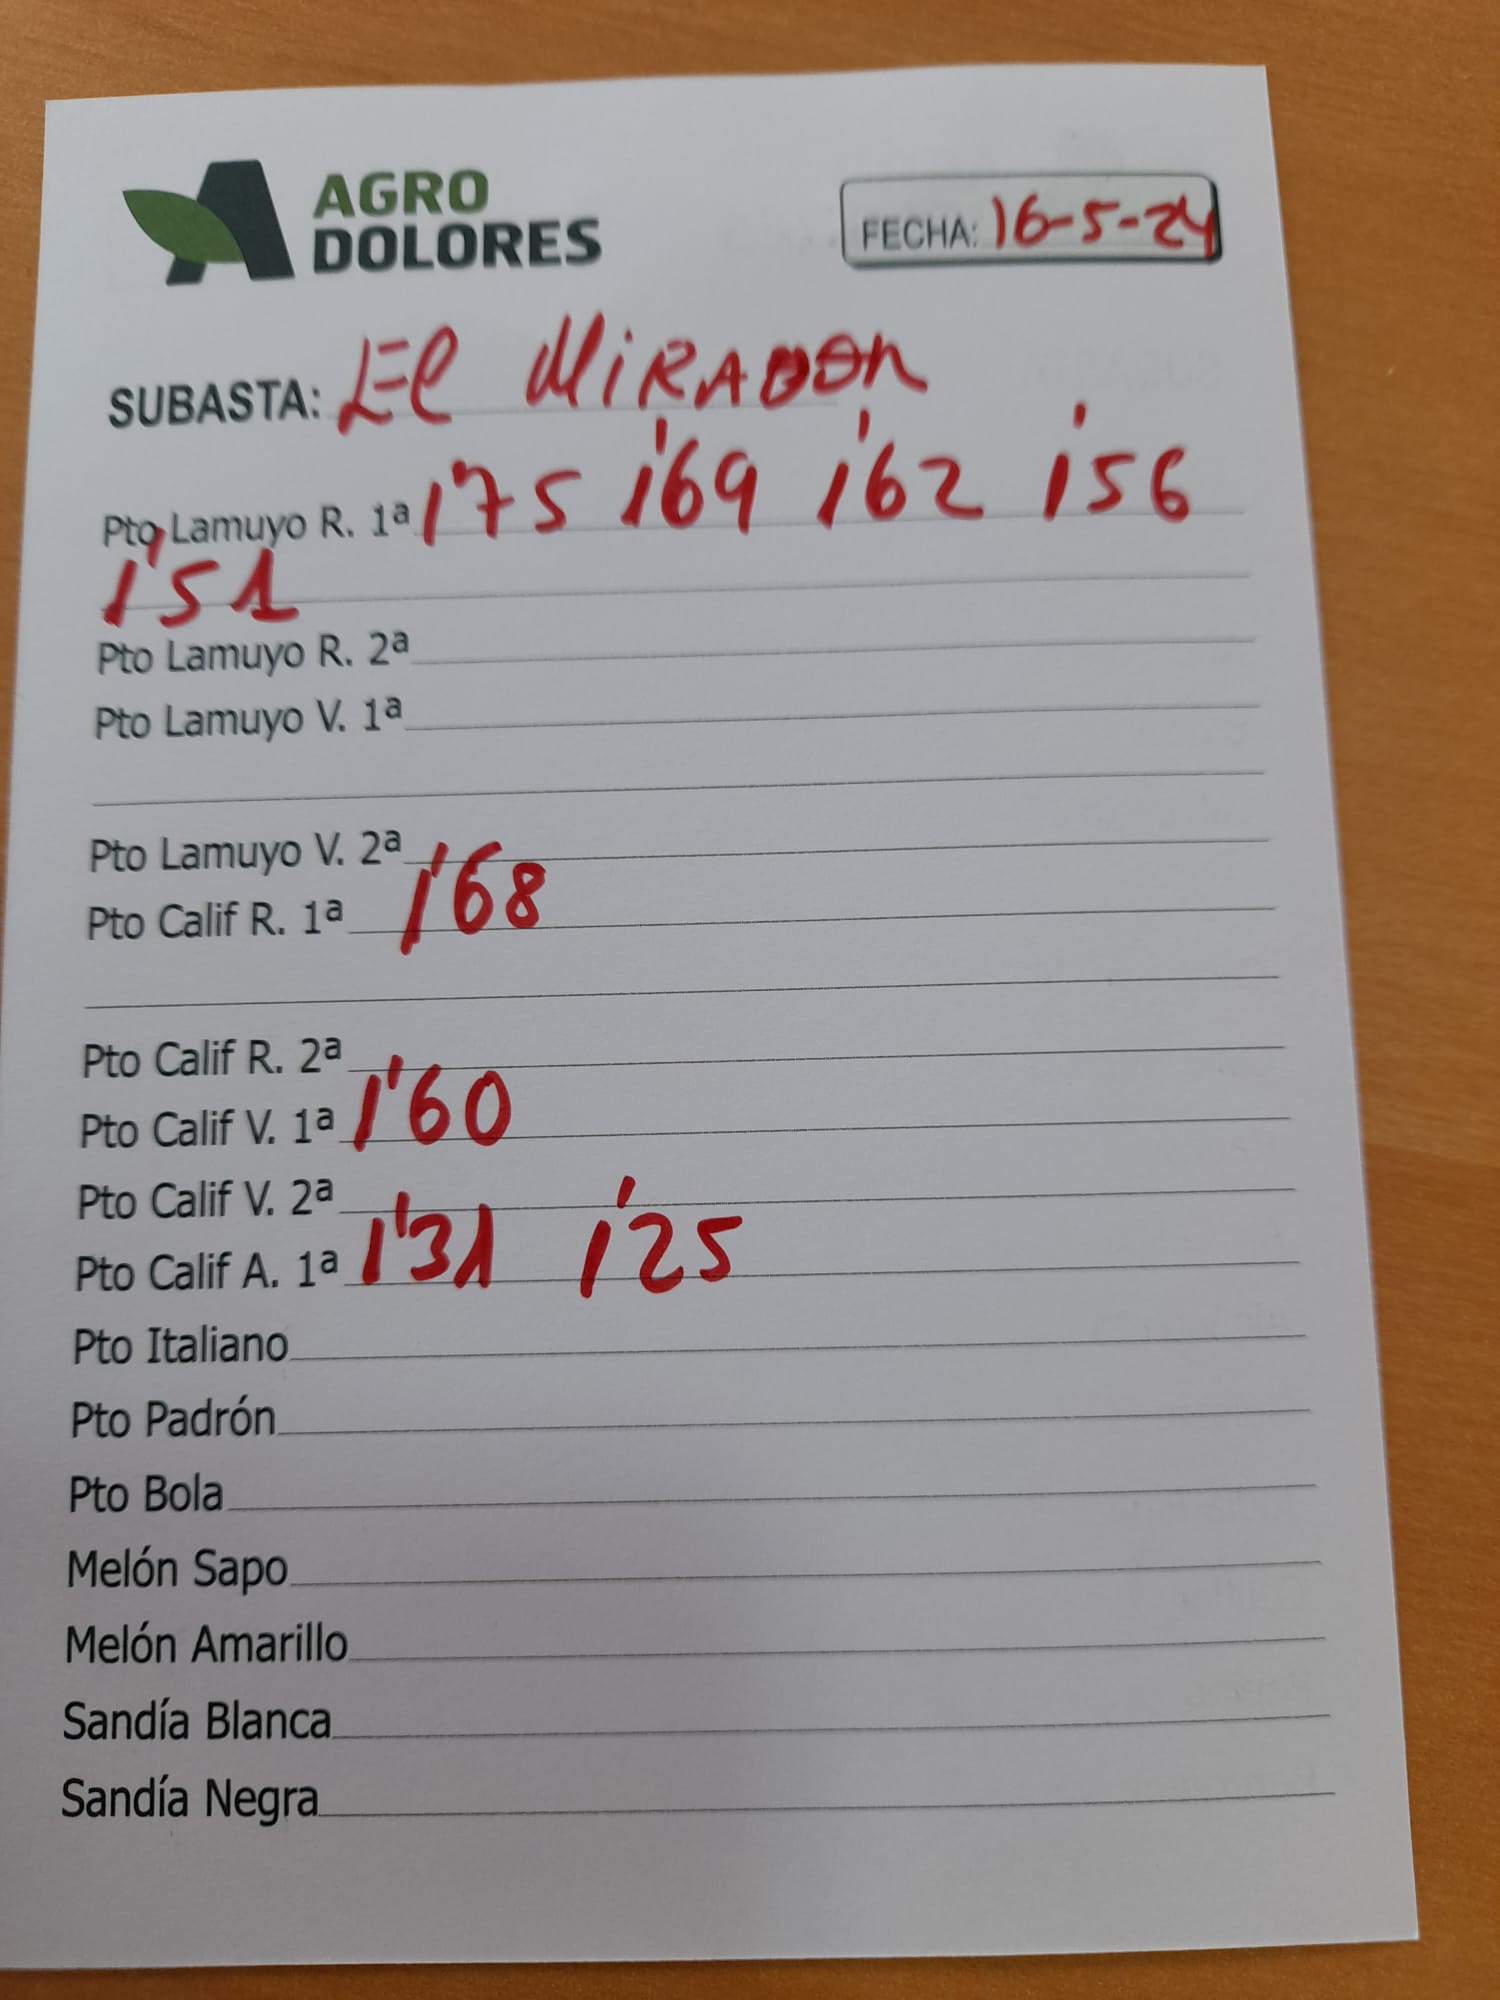 AGRO
DOLORES
FECHA: 16-5-24
SUBASTA: El MiRADOR
Pto Lamuyo R. 1ª 1'75 1'69 1'62 1'56
1'51
Pto Lamuyo R. 2ª
Pto Lamuyo V. 1ª
Pto Lamuyo V. 2ª
Pto Calif R. 1ª 1'68
Pto Calif R. 2ª
Pto Calif V. 1ª 1'60
Pto Calif V. 2ª
Pto Calif A. 1ª 1'31 1'25
Pto Italiano
Pto Padrón
Pto Bola
Melón Sapo
Melón Amarillo
Sandía Blanca
Sandía Negra